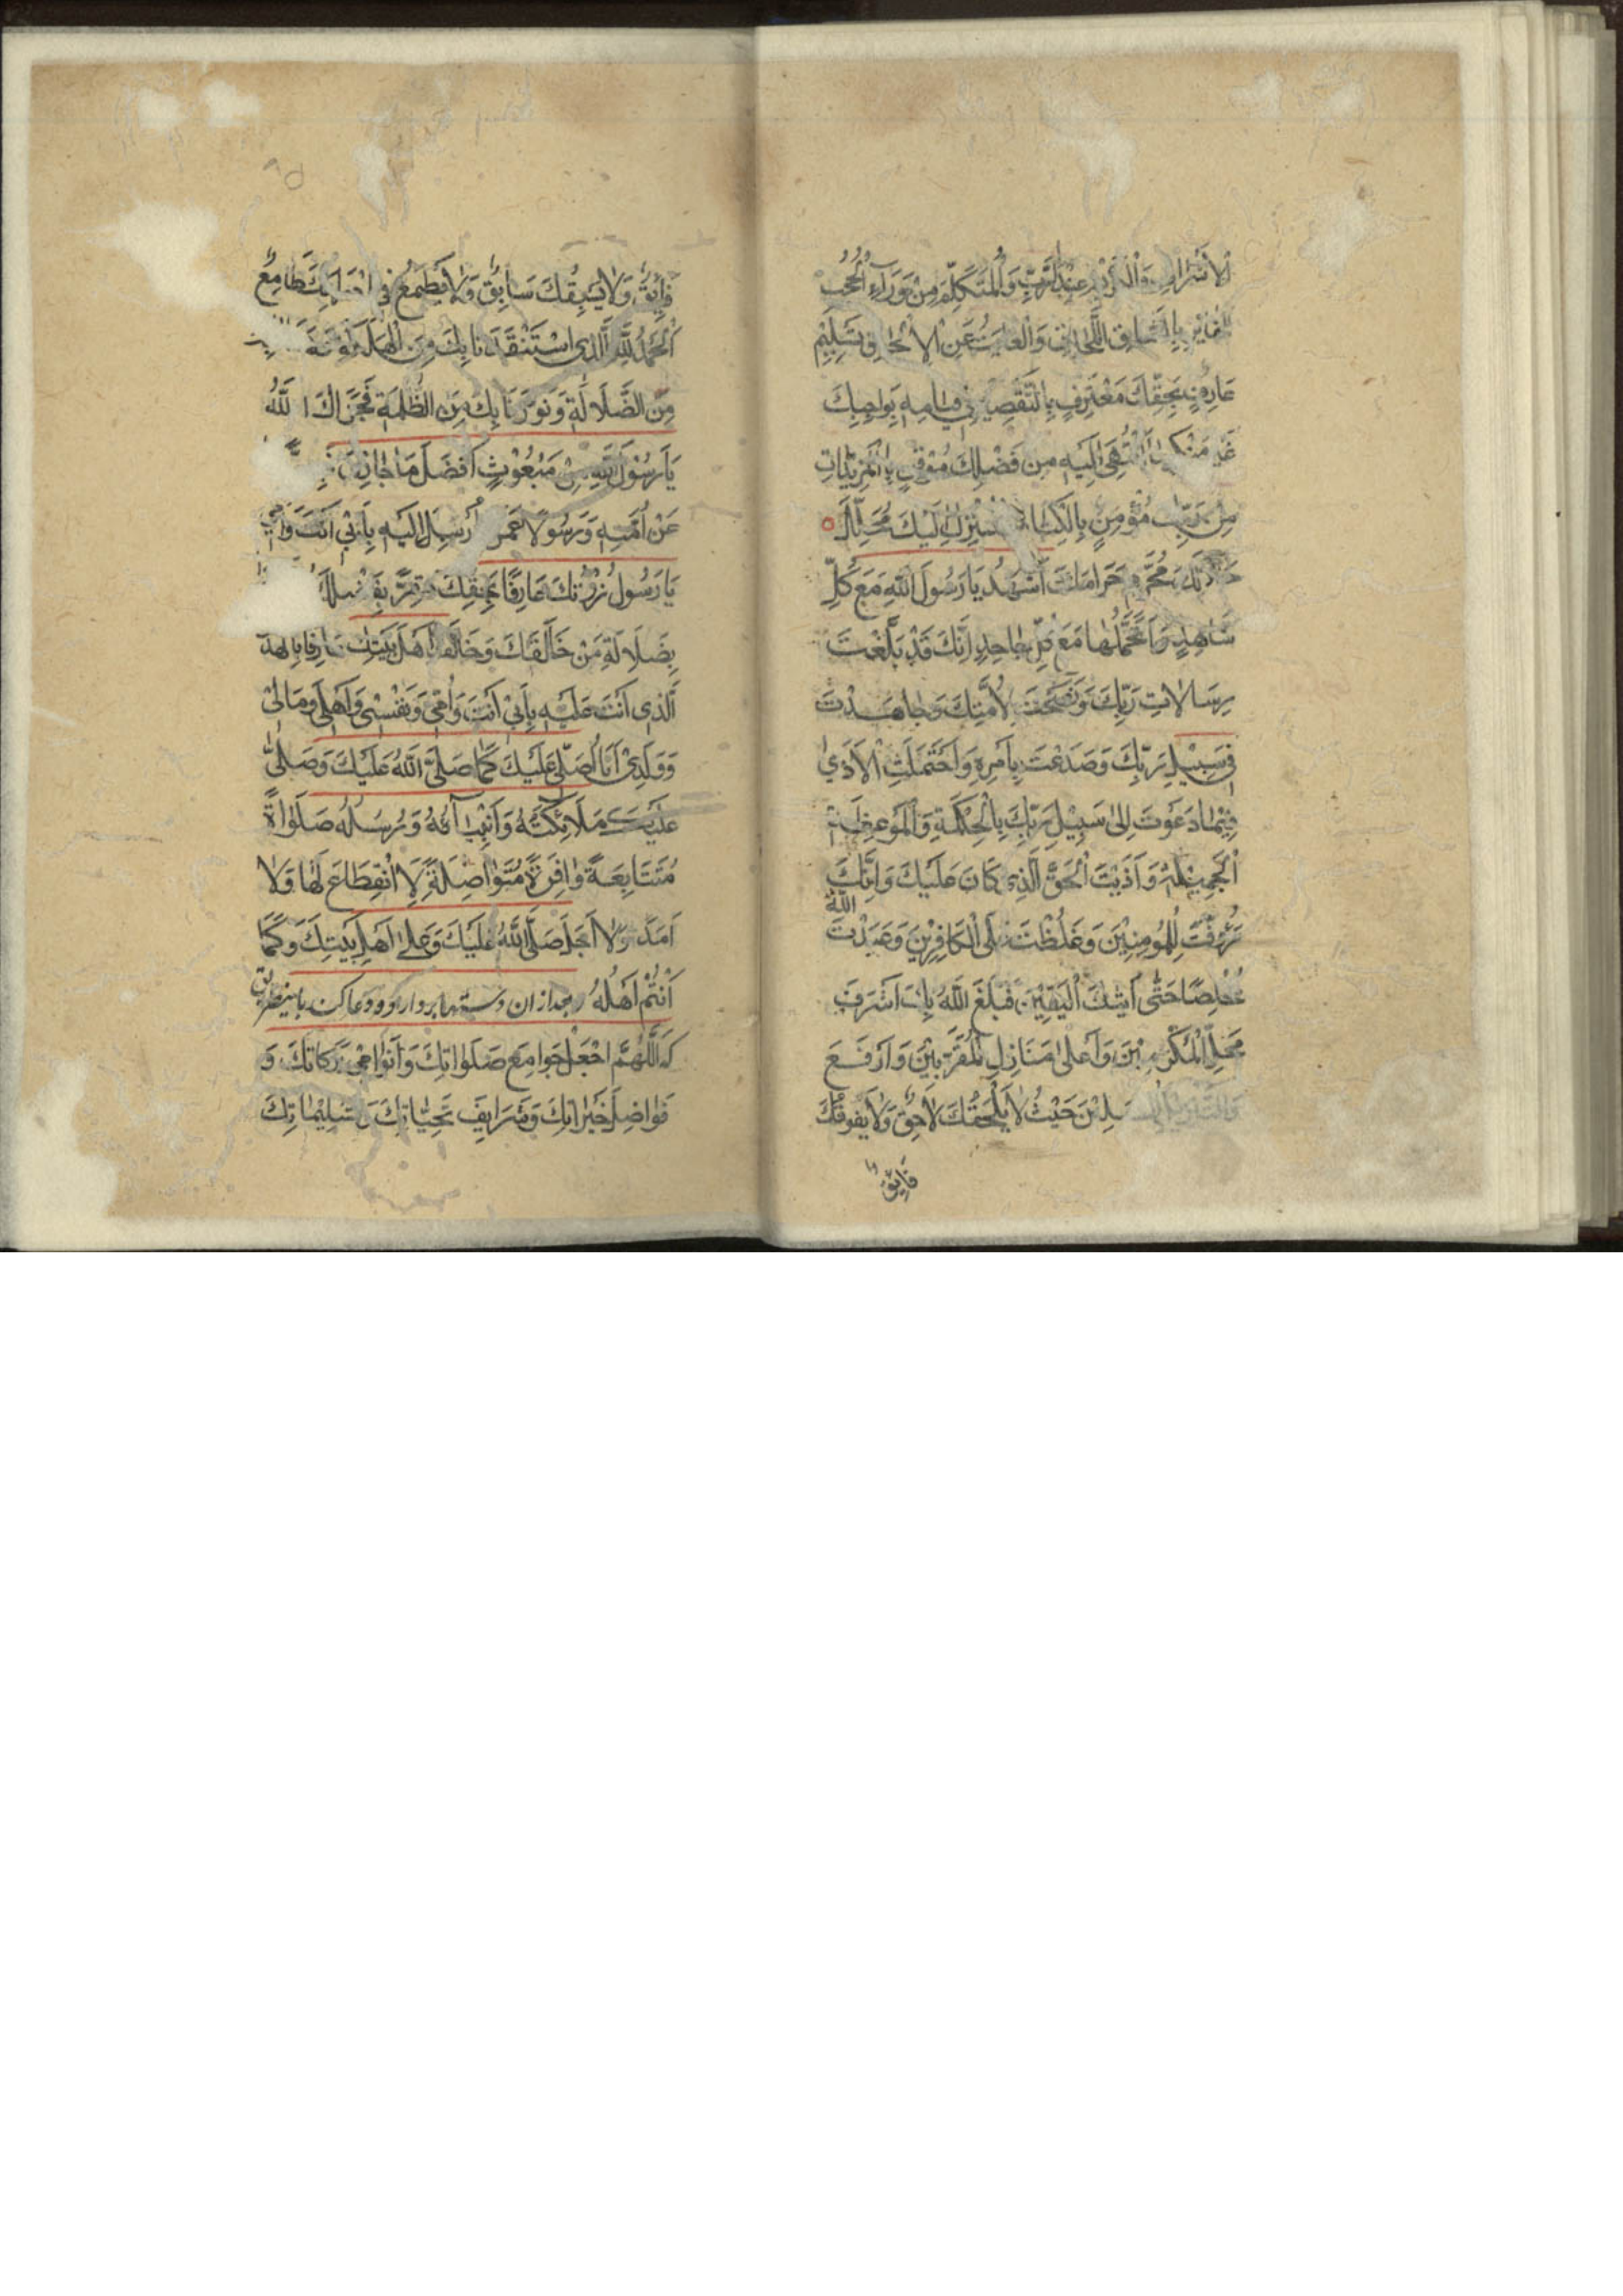 وَالْمُتَكَلِّمَ مِنْ وَرَآءِ الْحُجُبِ
الْفَايِزِ بِالسِّبَاقِ وَالْفَايِتِ عَنِ الْاِلْحَاقِ تَسْلِيْمَ
عَارِفٍ بِحَقِّكَ مُعْتَرِفٍ بِالتَّقْصِيْرِ فِي قِيَامِهِ بِوَاجِبِكَ
غَيْرَ مُنْكِرٍ مَا انْتَهٰى اِلَيْهِ مِنْ فَضْلِكَ مُوْقِنٍ بِالْمَزِيْدَاتِ
مِنْ رَبِّكَ مُؤْمِنٍ بِالْكِتَابِ الْمُنْزَلِ اِلَيْكَ مُحَلِّلٌ
حَلَالَكَ مُحَرِّمٍ حَرَامَكَ اَشْهَدُ يَا رَسُوْلَ اللّٰهِ مَعَ كُلِّ
شَاهِدٍ وَاَتَحَمَّلُهَا مَعَ كُلِّ جَاحِدٍ اِنَّكَ قَدْ بَلَّغْتَ
رِسَالَاتِ رَبِّكَ وَنَصَحْتَ لِاُمَّتِكَ وَجَاهَدْتَ
فِي سَبِيْلِ رَبِّكَ وَصَدَعْتَ بِاَمْرِهِ وَاحْتَمَلْتَ الْاَذٰى
فِيْمَا دَعَوْتَ اِلٰى سَبِيْلِ رَبِّكَ بِالْحِكْمَةِ وَالْمَوْعِظَةِ
الْجَمِيْلَةِ وَاَدَّيْتَ الْحَقَّ الَّذِي كَانَ عَلَيْكَ وَاِنَّكَ
رَؤُفْتَ لِلْمُؤْمِنِيْنَ وَغَلُظْتَ عَلَى الْكَافِرِيْنَ وَعَبَدْتَ اللّٰهَ
مُخْلِصًا حَتّٰى اَتٰيكَ الْيَقِيْنَ فَبَلَغَ اللّٰهُ بِكَ اَشْرَفَ
مَحَلِّ الْمُكَرَّمِيْنَ وَاَعْلٰى مَنَازِلِ الْمُقَرَّبِيْنَ وَاَرْفَعَ
حَيْثُ لَا يَلْحَقُكَ لَاحِقٌ وَلَا يَفُوْقُكَ
فَايِقٌ
فَايِقٌ وَلَا يَسْبِقُكَ سَابِقٌ وَلَا يَطْمَعُ فِي طَامِعٌ
اَلْحَمْدُ لِلّٰهِ الَّذِي اسْتَنْقَذَنَا بِكَ مِنَ الْهَلَكَةِ
مِنَ الضَّلَالَةِ وَنَوَّرَنَا بِكَ مِنَ الظُّلْمَةِ فَجَزَاكَ اللّٰهُ
يَا رَسُوْلَ اللّٰهِ مِنْ مَبْعُوْثٍ اَفْضَلَ مَا جَازٰى
عَنْ اُمَّتِهِ وَرَسُوْلًا عَمَّنْ اُرْسِلَ اِلَيْهِ بِاَبِي اَنْتَ وَاُمِّي
يَا رَسُوْلُ زُرْتُكَ عَارِفًا بِحَقِّكَ مُقِرًّا بِفَضْلِكَ
بِضَلَالَةِ مَنْ خَالَفَكَ وَخَالَفَ اَهْلَ بَيْتِكَ عَارِفًا بِالْهُدٰى
الَّذِي اَنْتَ عَلَيْهِ بِاَبِي اَنْتَ وَاُمِّي وَنَفْسِي وَاَهْلِي وَمَالِي
وَوَلَدِي اَنَا اُصَلِّي عَلَيْكَ كَمَا صَلَّى اللّٰهُ عَلَيْكَ وَصَلّٰى
عَلَيْكَ مَلَائِكَتُهُ وَاَنْبِيَآئُهُ وَرُسُلُهُ صَلٰوةً
مُتَتَابِعَةً وَافِرَةً مُتَوَاصِلَةً لَا انْقِطَاعَ لَهَا وَلَا
اَمَدَ وَلَا اَجَلَ صَلَّى اللّٰهُ عَلَيْكَ وَعَلٰى اَهْلِ بَيْتِكَ وَكَمَا
اَنْتُمْ اَهْلُهُ بعد از ان دستها بردارد و دعا كند باينطريق
كه اَللّٰهُمَّ اجْعَلْ جَوَامِعَ صَلَوَاتِكَ وَاَنْوَامِي بَرَكَاتِكَ وَ
فَوَاضِلَ خَيْرَاتِكَ وَشَرَايِفَ تَحِيَّاتِكَ وَتَسْلِيْمَاتِكَ